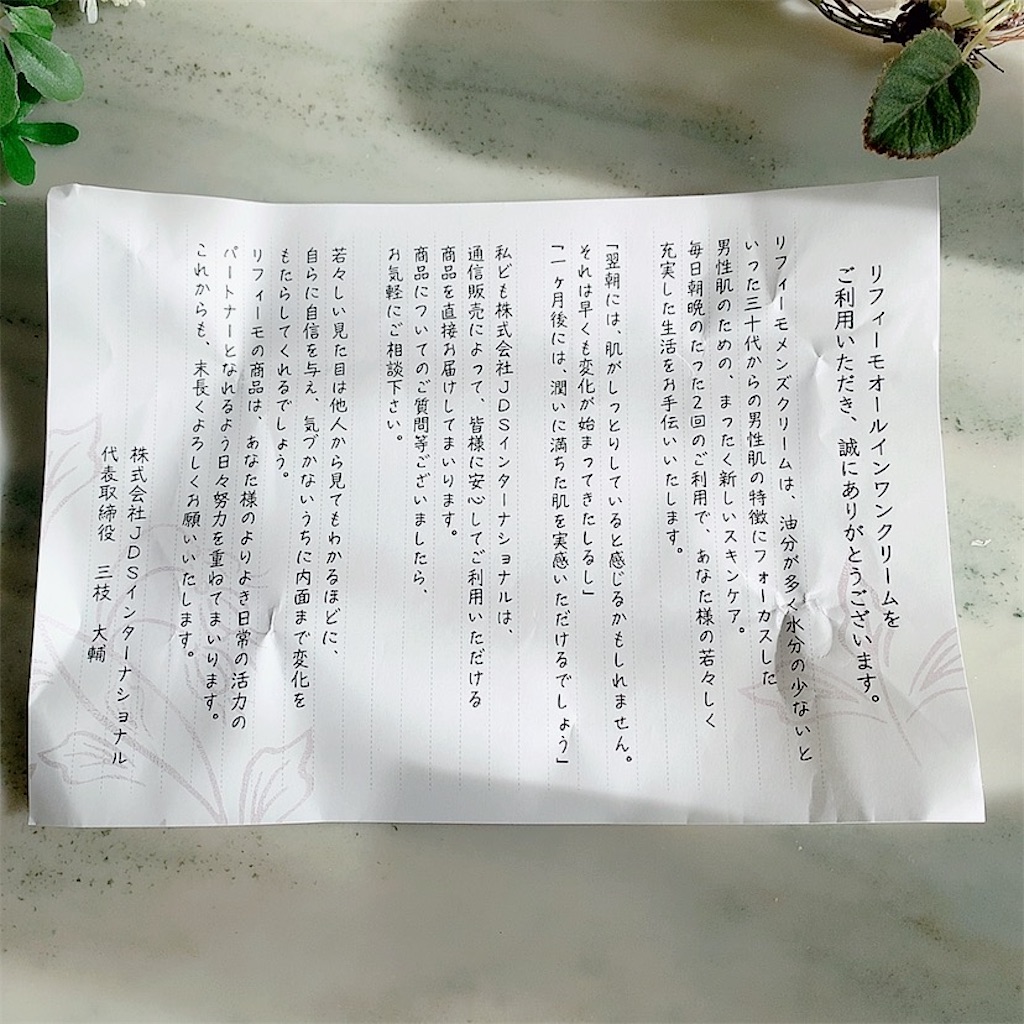 リフィーモオールインワンクリームを
ご利用いただき、誠にありがとうございます。
リフィーモメンズクリームは、油分が多く水分の少ないと
いった三十代からの男性肌の特徴にフォーカスした
男性肌のための、まったく新しいスキンケア。
毎日朝晩のたった2回のご利用で、あなた様の若々しく
充実した生活をお手伝いいたします。
「翌朝には、肌がしっとりしていると感じるかもしれません。
それは早くも変化が始まってきたしるし」
「一ヶ月後には、潤いに満ちた肌を実感いただけるでしょう」
私ども株式会社JDSインターナショナルは、
通信販売によって、皆様に安心してご利用いただける
商品を直接お届けしてまいります。
商品についてのご質問等ございましたら、
お気軽にご相談下さい。
若々しい見た目は他人から見てもわかるほどに、
自らに自信を与え、気づかないうちに内面まで変化を
もたらしてくれるでしょう。
リフィーモの商品は、あなた様のよりよき日常の活力の
パートナーとなれるよう日々努力を重ねてまいります。
これからも、末長くよろしくお願いいたします。
株式会社JDSインターナショナル
代表取締役 三枝 大輔